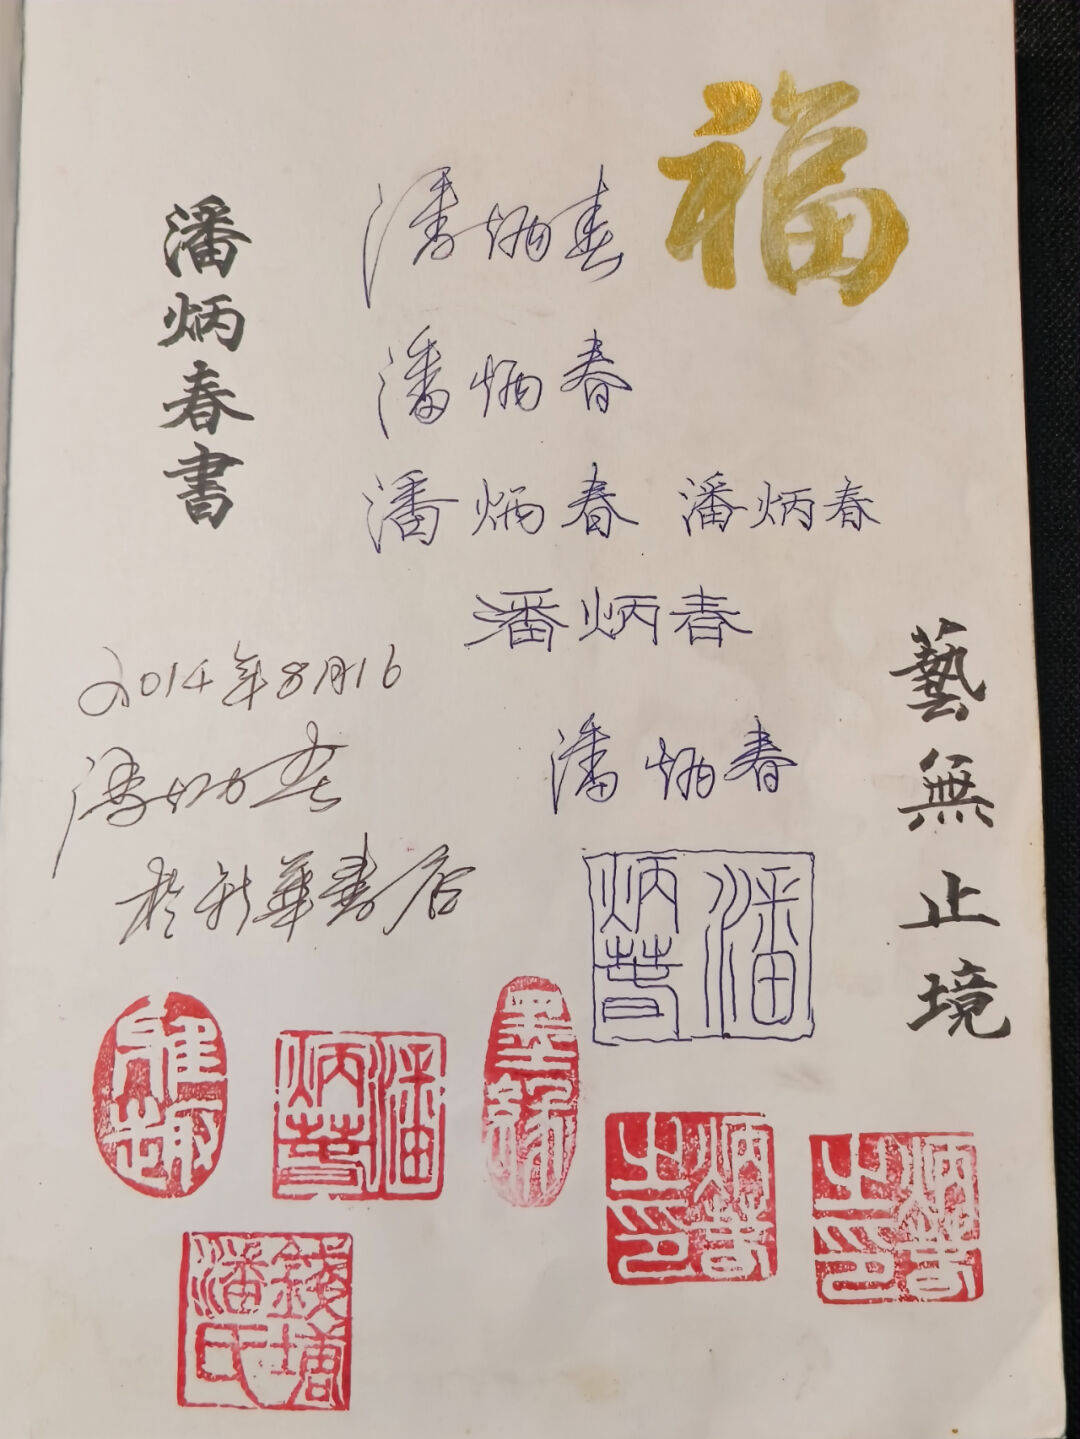 福
潘炳春書
潘炳春
潘炳春
潘炳春 潘炳春
潘炳春
潘炳春
藝無止境
2014年8月16
潘炳春
于新華書店
潘炳春
雅趣
潘炳春
墨緣
炳春之印
炳春之印
錢塘潘氏